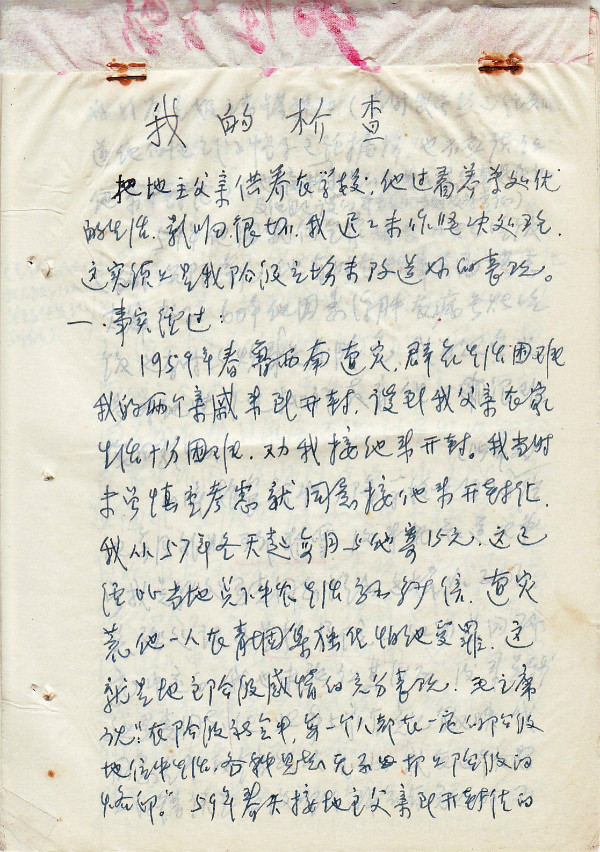 我的检查
把地主父亲供养在学校，他过着养尊处优
的生活，影响很坏，我迟迟未作坚决处理，
这实质上是我阶级立场未改造好的表现。
一、事实经过：
1959年春鲁西南遭灾，群众生活困难
我的两个亲戚来到开封，谈到我父亲在家
生活十分困难，劝我接他来开封。我当时
未曾慎重考虑就同意接他来开封住，
我从57年冬天起每月与他寄15元，这已
经比当地贫下中农生活高好几倍，遭灾
荒他一人在青固集独住怕他受罪，这
就是地主阶级感情的充分表现。毛主席
说：“在阶级社会中，每一个人都在一定的阶级
地位中生活，各种思想无不打上阶级的
烙印。”59年春天接地主父亲到开封住的